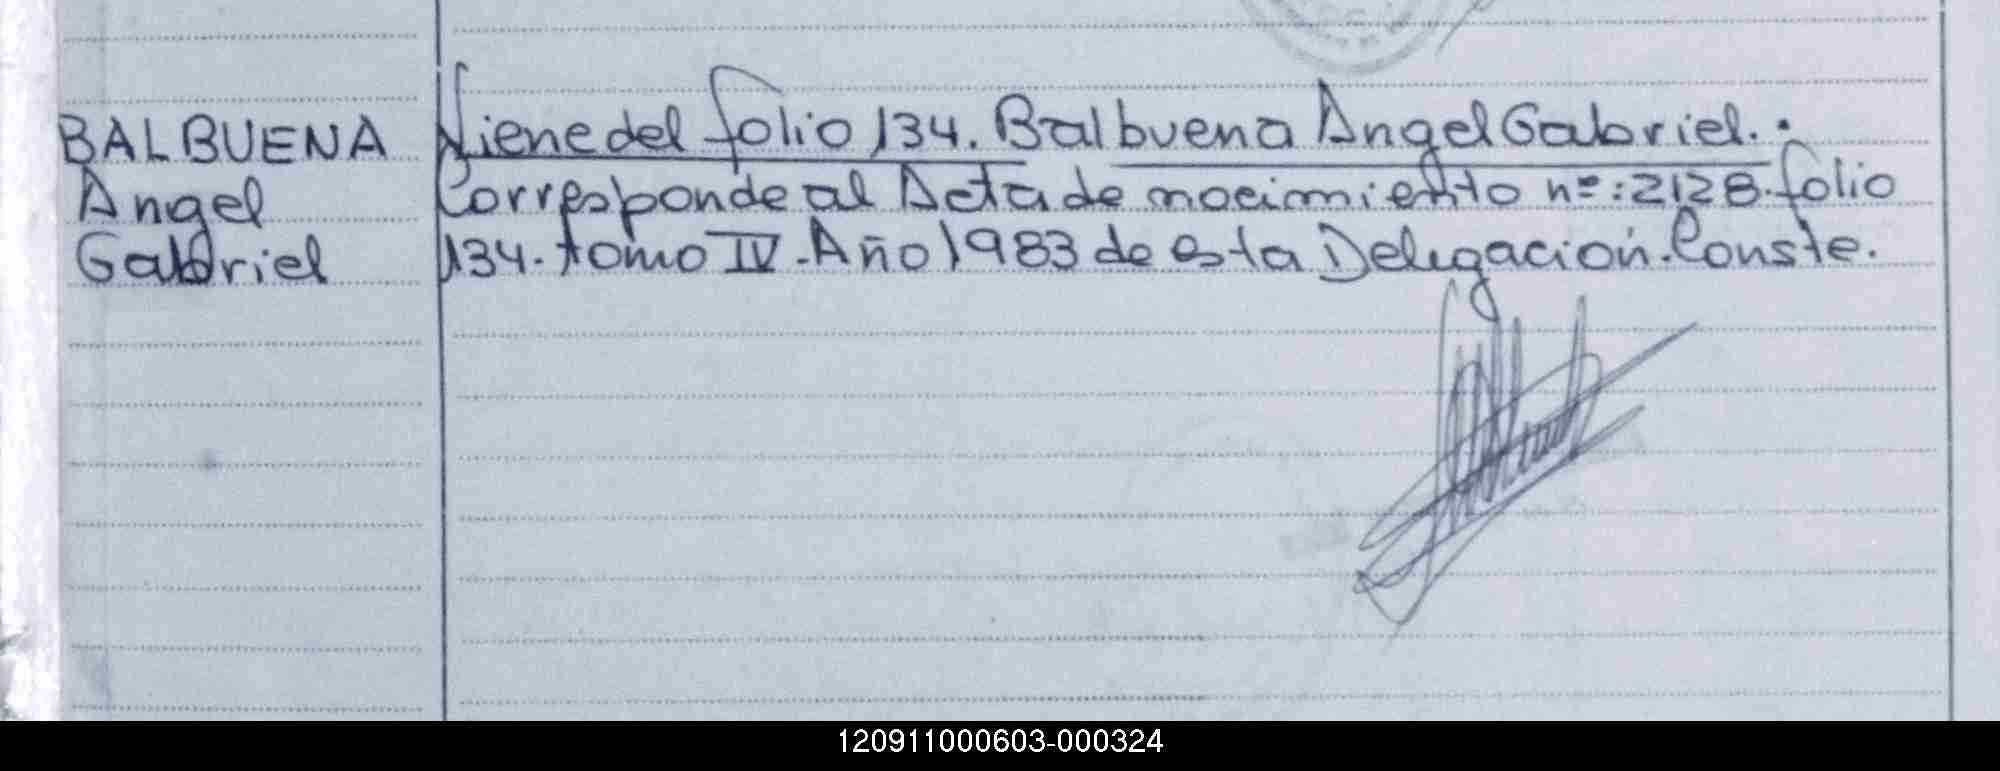 BALBUENA
Angel
Gabriel
Viene del folio 134. Balbuena Angel Gabriel..
Corresponde al Acta de nacimiento nº: 2128. folio
134. tomo IV. Año 1983 de esta Delegación. Conste.
120911000603-000324